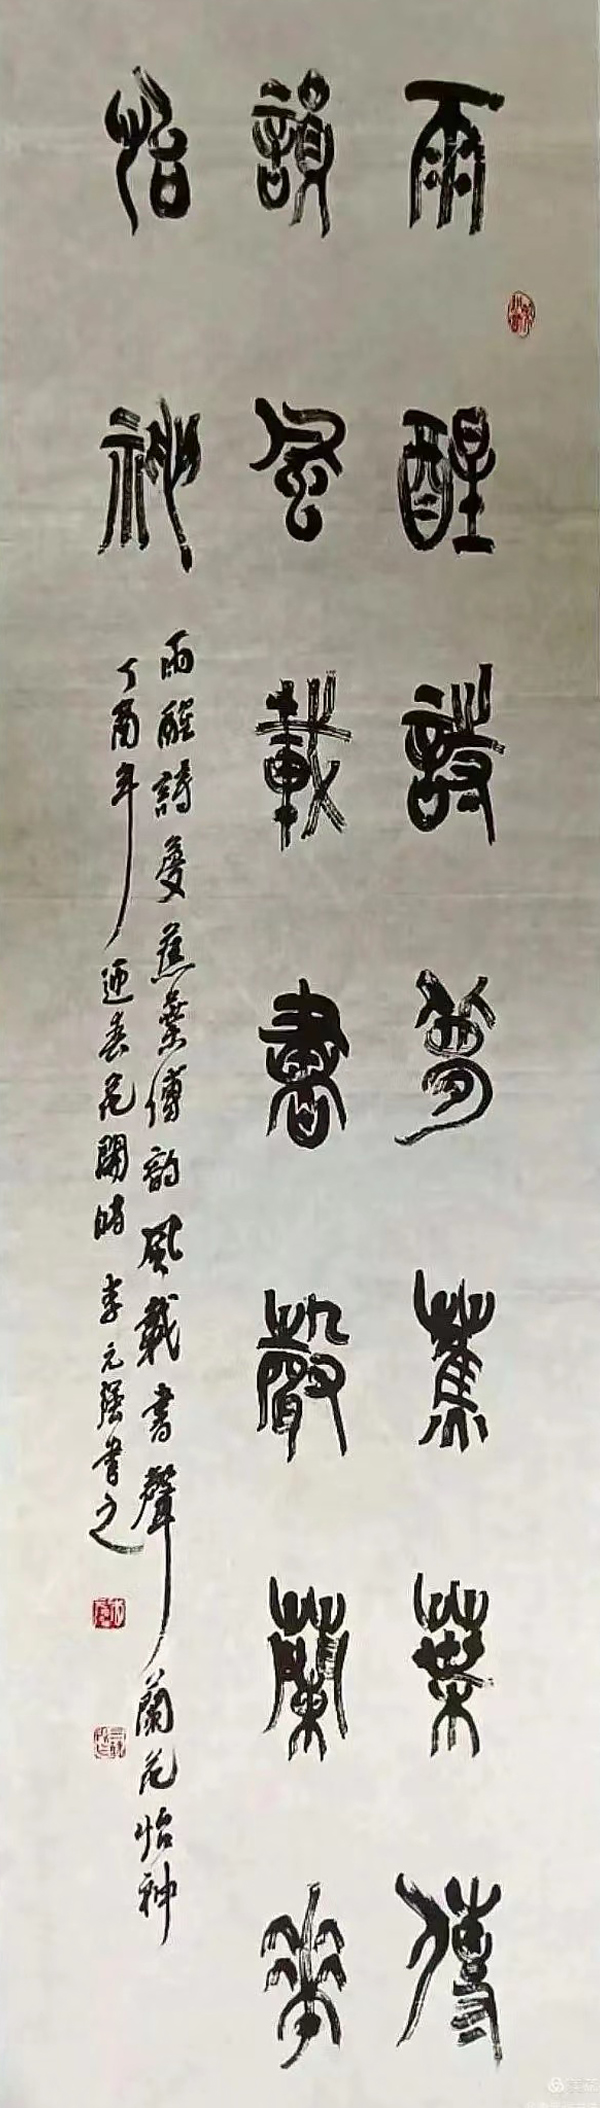 雨醒詩夢蕉葉傳
韻風載書聲蘭花
怡神
雨醒詩夢蕉葉傳韵風載書聲蘭花怡神
丁酉年迎春花開時李元强書之